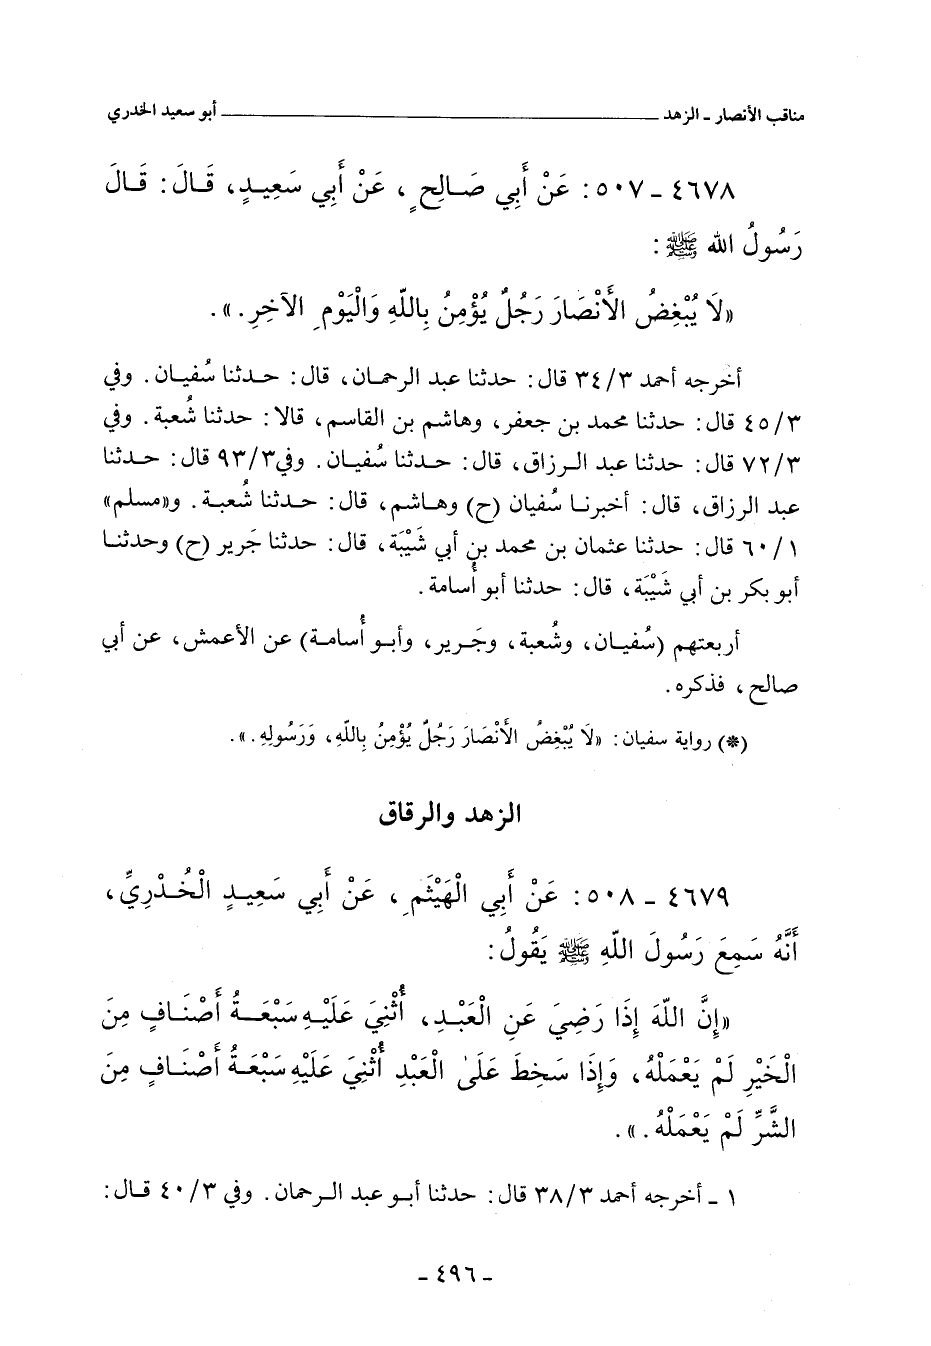 مناقب الأنصار ـ الزهد ــــــــ أبو سعيد الخدري
٤٦٧٨ ـ ٥٠٧ : عَنْ أَبِي صَالِحٍ ، عَنْ أَبِي سَعِيدٍ ، قَالَ : قَالَ
رَسُولُ الله ﷺ :
«لَا يُبْغِضُ الأَنْصَارَ رَجُلٌ يُؤْمِنُ بِاللَّهِ وَالْيَوْمِ الآخِرِ . » .
أخرجه أحمد ٣٤/٣ قال : حدثنا عبد الرحمان ، قال : حدثنا سُفيان . وفي
٤٥/٣ قال : حدثنا محمد بن جعفر ، وهاشم بن القاسم ، قالا : حدثنا شُعبة . وفي
٧٢/٣ قال : حدثنا عبد الرزاق ، قال : حدثنا سُفيان . وفي٩٣/٣ قال : حدثنا
عبد الرزاق ، قال : أخبرنا سُفيان (ح) وهاشم ، قال : حدثنا شُعبة . و«مسلم»
٦٠/١ قال : حدثنا عثمان بن محمد بن أبي شَيْبَة ، قال : حدثنا جَرير (ح) وحدثنا
أبو بكر بن أبي شَيْبَة ، قال : حدثنا أبو أُسامة .
أربعتهم (سُفيان ، وشُعبة ، وجَرير ، وأبو أُسامة) عن الأعمش ، عن أبي
صالح ، فذكره .
(*) رواية سفيان : «لَا يُبْغِضُ الأَنْصَارَ رَجُلٌ يُؤْمِنُ بِاللَّهِ ، وَرَسُولِهِ . » .
الزهد والرقاق
٤٦٧٩ ـ ٥٠٨ : عَنْ أَبِي الْهَيْثَمِ ، عَنْ أَبِي سَعِيدٍ الْخُدْرِيِّ ،
أَنَّهُ سَمِعَ رَسُولَ اللَّهِ ﷺ يَقُولُ :
«إِنَّ اللَّهَ إِذَا رَضِيَ عَنِ الْعَبْدِ ، أُثْنِيَ عَلَيْهِ سَبْعَةُ أَصْنَافٍ مِنَ
الْخَيْرِ لَمْ يَعْمَلْهُ ، وَإِذَا سَخِطَ عَلَىٰ الْعَبْدِ أُثْنِيَ عَلَيْهِ سَبْعَةُ أَصْنَافٍ مِنَ
الشَّرِّ لَمْ يَعْمَلْهُ . » .
١ ـ أخرجه أحمد ٣٨/٣ قال : حدثنا أبو عبد الرحمان . وفي ٤٠/٣ قال :
ـ ٤٩٦ ـ